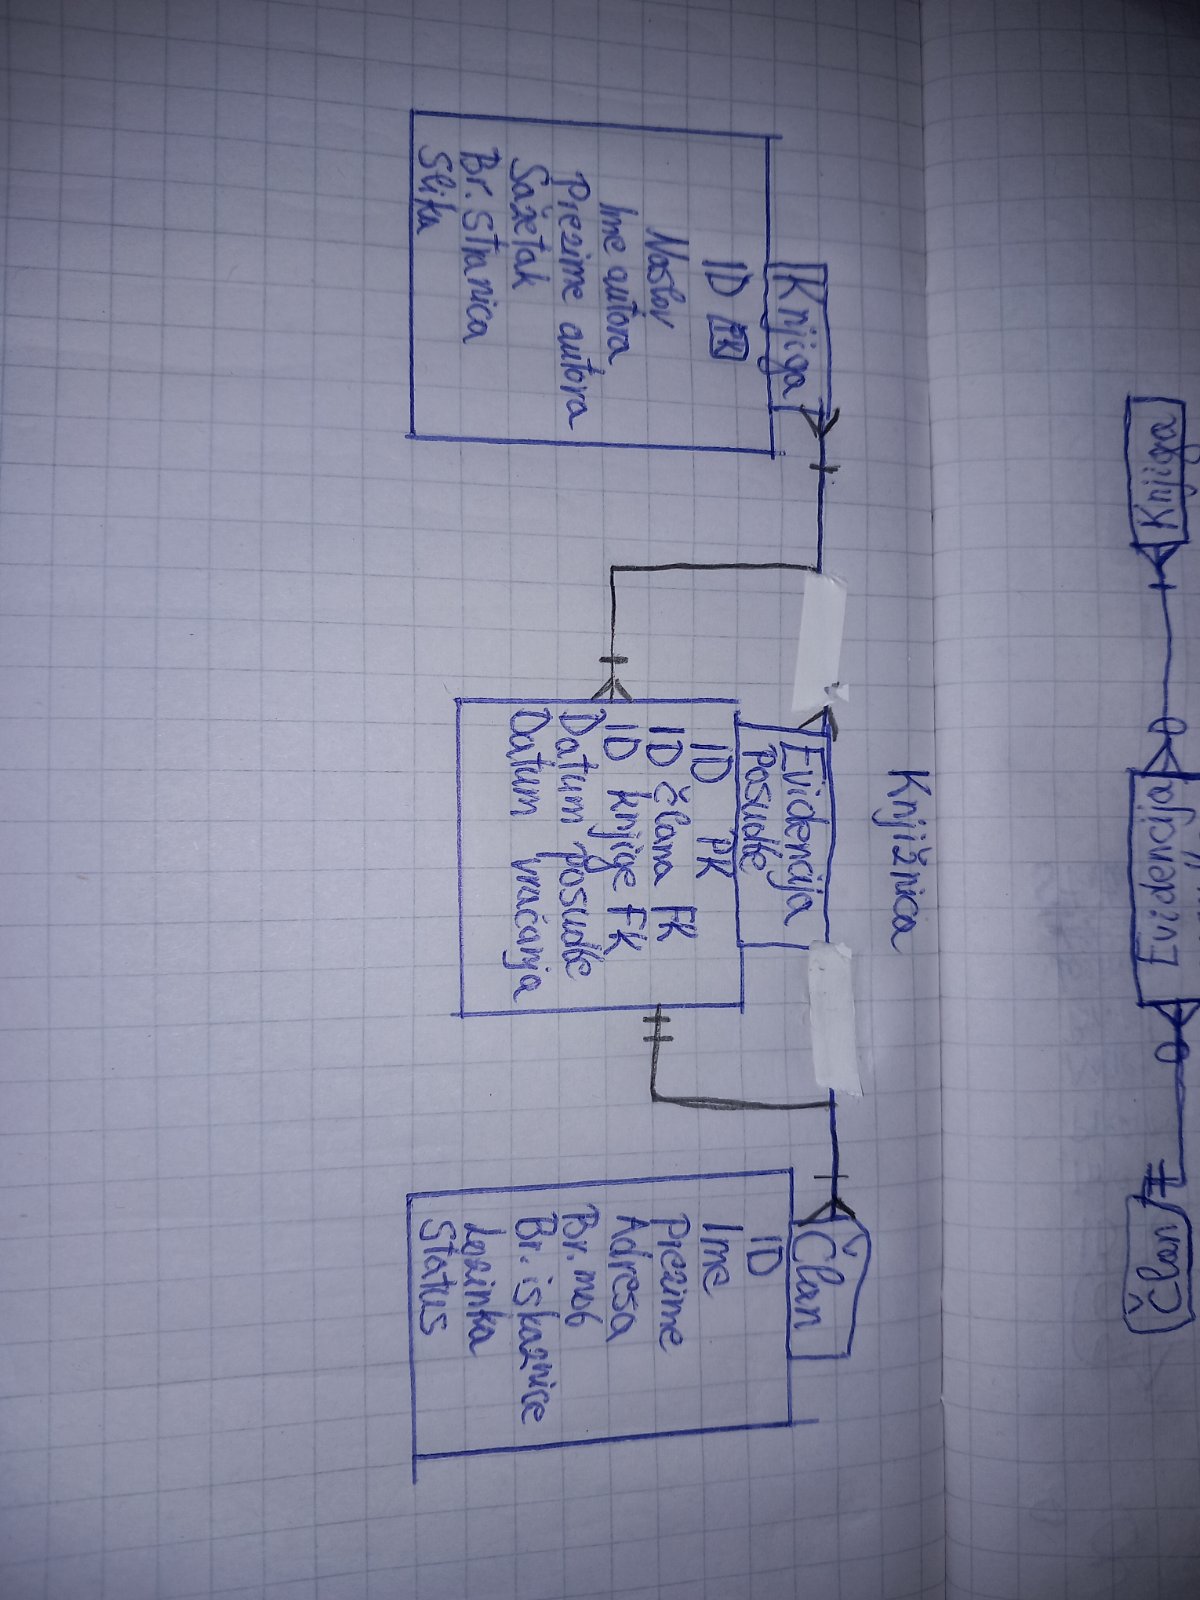 Knjiga
Evidencija
Član
Knjižnica
Knjiga
ID PK
Naslov
Ime autora
Prezime autora
Sažetak
Br. Stranica
Slika
Evidencija
posudbe
ID PK
ID člana FK
ID knjige FK
Datum posudbe
Datum vraćanja
Član
ID
Ime
Prezime
Adresa
Br. mob
Br. iskaznice
Lozinka
Status